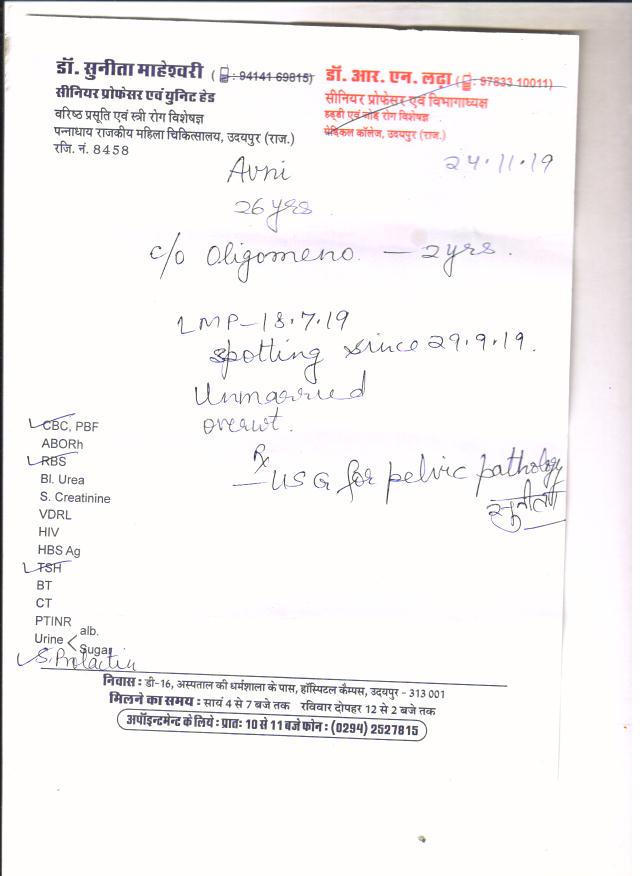 डॉ. सुनीता माहेश्वरी ( : 94141 69815) डॉ. आर. एन. लढ़ा ( : 97833 10011)
सीनियर प्रोफेसर एवं यूनिट हेड सीनियर प्रोफेसर एवं विभागाध्यक्ष
वरिष्ठ प्रसूति एवं स्त्री रोग विशेषज्ञ हड्डी एवं जोड़ रोग विशेषज्ञ
पन्नाधाय राजकीय महिला चिकित्सालय, उदयपुर (राज.) मेडिकल कॉलेज, उदयपुर (राज.)
रजि. नं. 8458
Avni 24.11.19
26 yrs
c/o Oligomeno. — 2 yrs.
LMP-18.7.19
spotting since 29.9.19.
Unmarried
overwt.
CBC, PBF
ABORh
Rx
RBS
— USG for pelvic pathology
Bl. Urea
S. Creatinine
VDRL
HIV
HBS Ag
TSH
BT
CT
PTINR
Urine < alb.
Sugar
S. Prolactin
निवास : डी-16, अस्पताल की धर्मशाला के पास, हॉस्पिटल कैम्पस, उदयपुर - 313 001
मिलने का समय : सायं 4 से 7 बजे तक रविवार दोपहर 12 से 2 बजे तक
अपॉइन्टमेन्ट के लिये : प्रातः 10 से 11 बजे फोन : (0294) 2527815